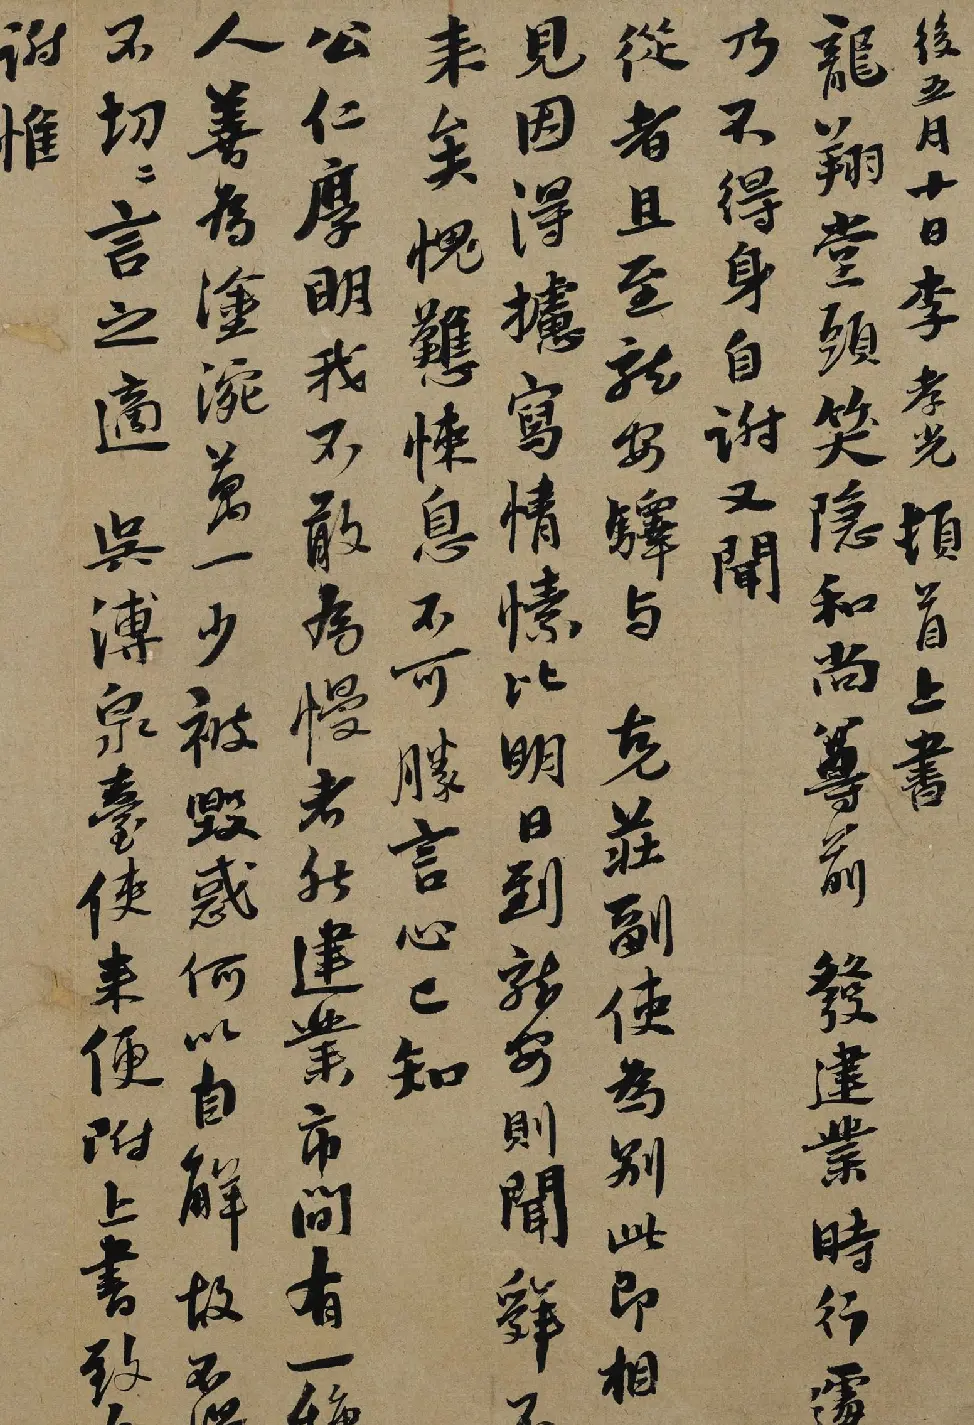 後五月廿日李孝光頓首上書
龍翔堂頭笑隐和尚尊前發建業時行
乃不得身自謝又聞
從者且至就安驛与克莊副使為别此即相
見因得攄寫情愫比明日到就安則聞
来矣愧難悚息不可勝言心已知
公仁厚明我不敢為慢者然建業市間有一
人善為塗涴萬一少被毀惑何以自解故不
不切ミ言之適吳溥泉臺使来便附上書致
謝惟